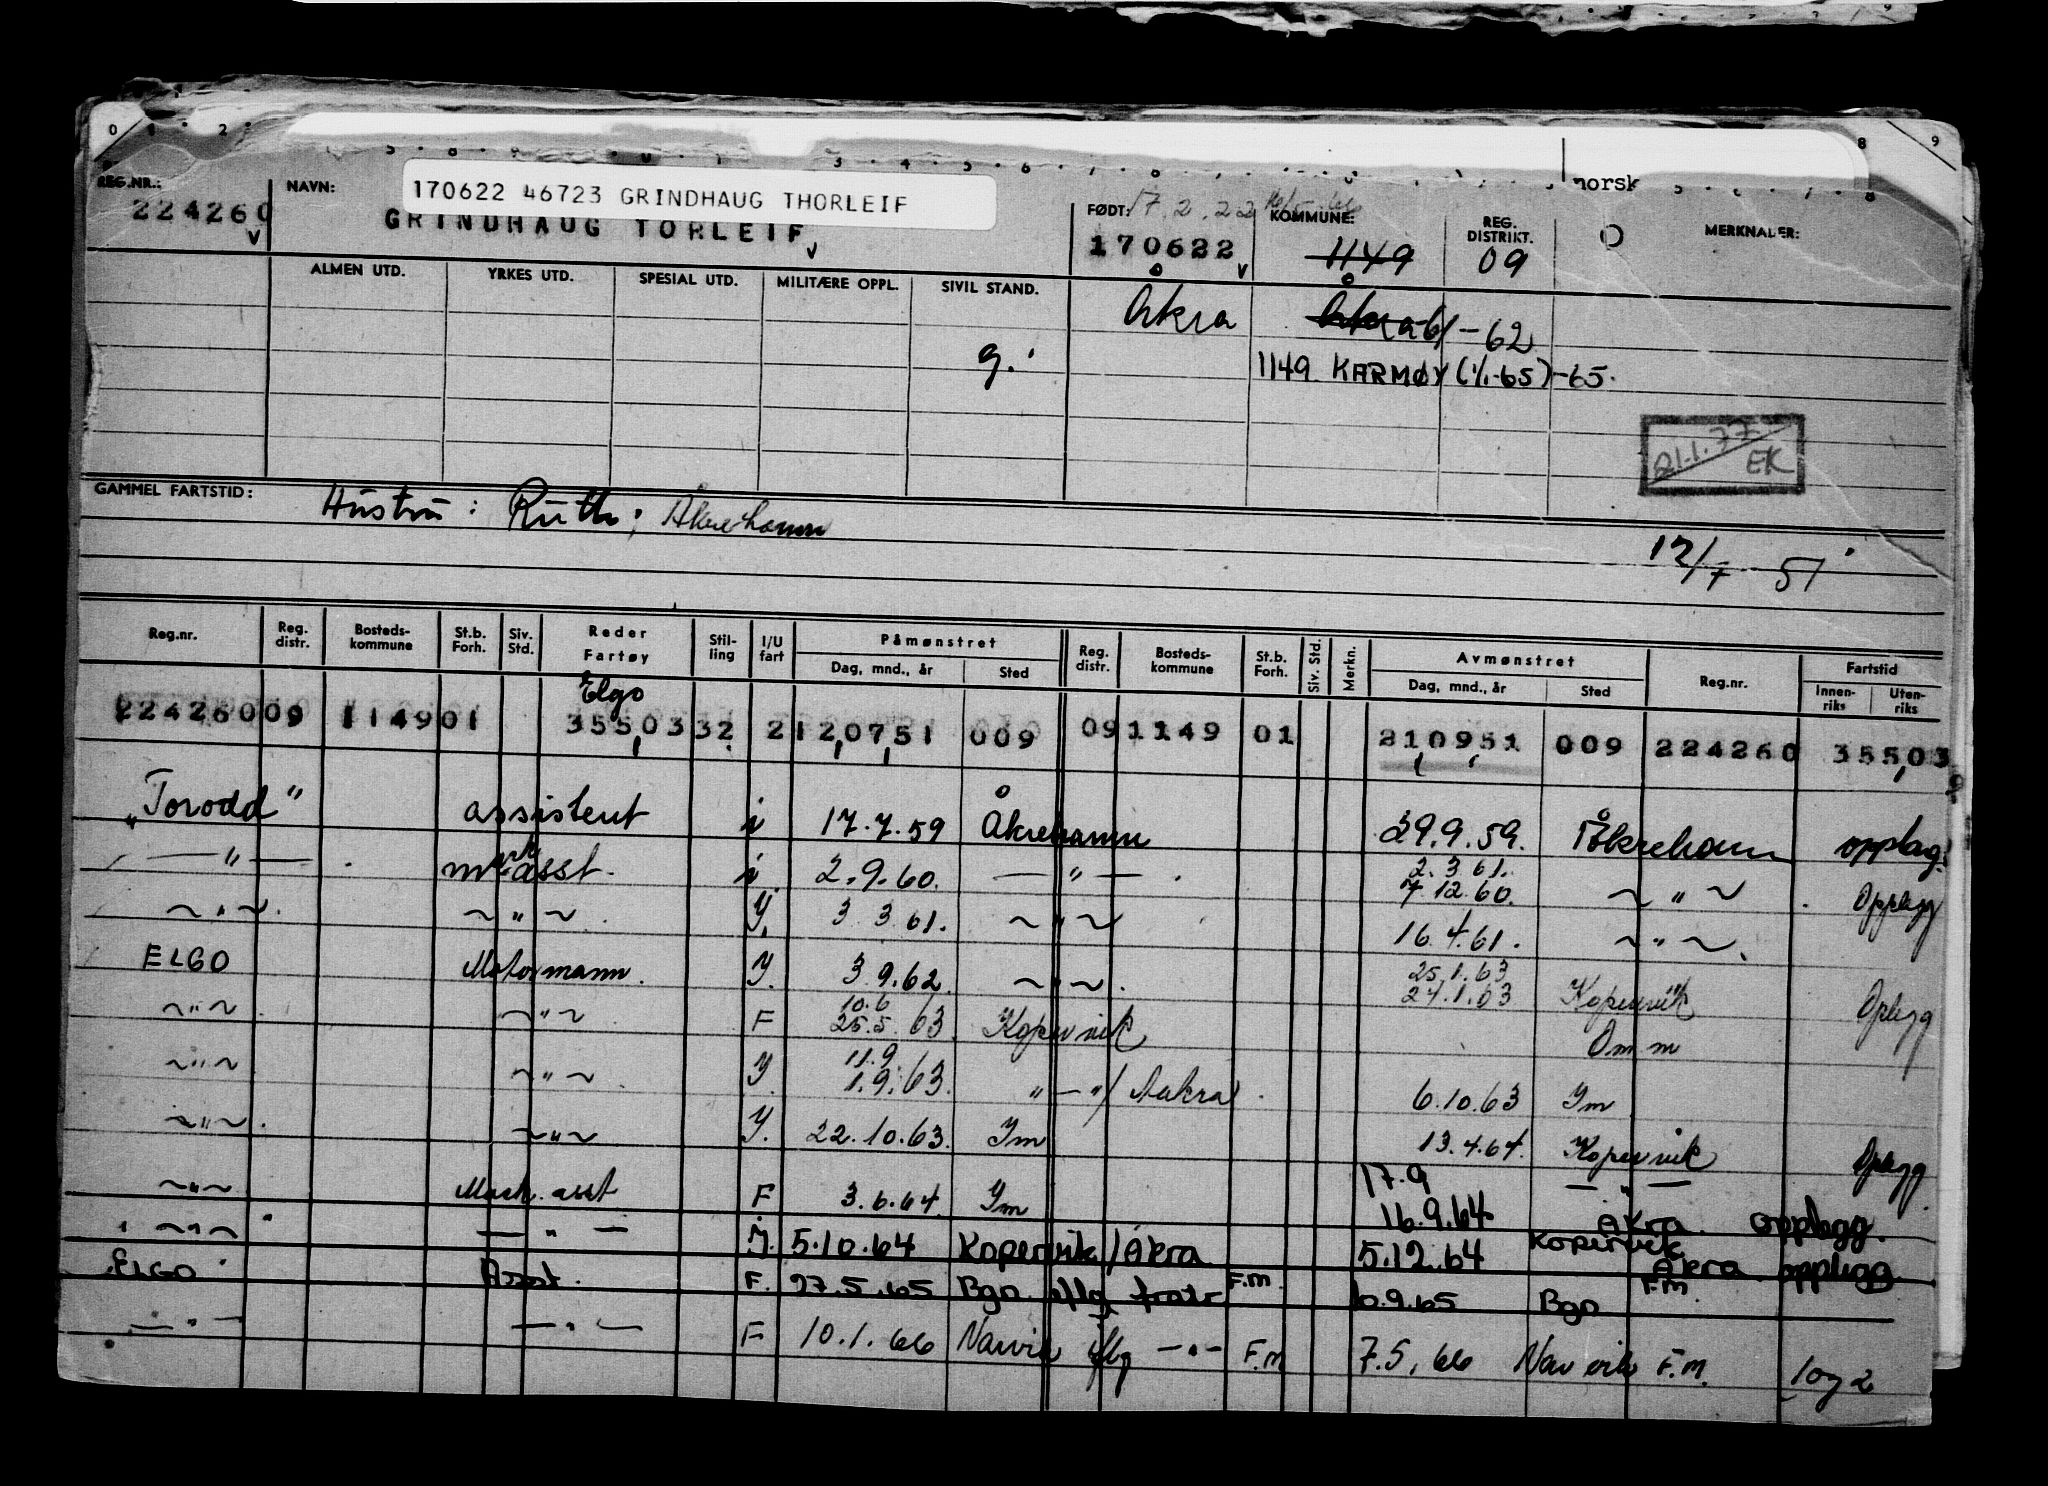 norsk
REG.NR.: NAVN: 170622 46723 GRINDHAUG THORLEIF FØDT: 17.2.22 KOMMUNE: REG. DISTRIKT. MERKNADER:
224260 GRINDHAUG TORLEIF 170622 1149 09
ALMEN UTD. YRKES UTD. SPESIAL UTD. MILITÆRE OPPL. SIVIL STAND. Åkra Åkra -61 -62
g. 1149 KARMØY (1/1-65) -65.
21.1.77 EK
GAMMEL FARTSTID: Hustru : Ruth; Åkrehamn
12/7 51
Reg.nr. Reg. distr. Bosteds- kommune St.b. Forh. Siv. Std. Reder Fartøy Stil- ling I/U fart Påmønstret Reg. distr. Bosteds- kommune St.b. Forh. Siv. Std. Merkn. Avmønstret Reg.nr. Fartstid
Dag, mnd., år Sted Dag, mnd., år Sted Innen- riks Uten- riks
Elgo
224260 09 1149 01 35503 32 2 120751 009 09 1149 01 210951 009 224260 35503
"Torodd" assistent i 17.7.59 Åkrehamn 29.9.59. Åkrehamn opplag.
— " — . mask asst. i 2.9.60. — " — . 2.3.61. 7.12.60. ~ " ~ . Opplegg
~ " ~ . ~ " ~ . Y. 3 3 61. ~ " ~ 16.4.61. ~ " ~ .
ELGO Motormann. Y. 3 9.62. ~ " ~ . 25.1.63 27.1.63 Kopervik Oplegg
~ " ~ ~ " ~ F 10.6 25.5.63. Kopervik Omm
~ " ~ ~ " ~ . Y 11.9. 1.9.63. " — " / Aakra . 6.10.63 Ym
~ " ~ . ~ " ~ Y. 22.10.63. Ym 13.4.64. Kopervik Oplegg
~ " ~ Mask. asst F 3.6.64. Ym 17.9 16.9.64 — " — Akra. opplegg.
~ " ~ — " — Y. 5.10.64 Kopervik / Åkra 5.12.64 Kopervik Åkra opplegg
ELGO Asst. F. 27.5.65 Bgo iflg fratr F.m. 6.9.65 Bgo F.m
— " — — " — F 10.1.66 Narvik iflg — " — F.m 7.5.66 Narvik F.m. 1 og 2